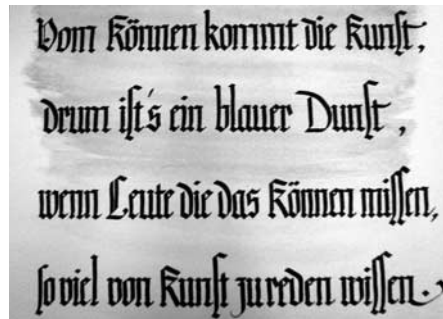 Vom Können kommt die Kunst,
drum ist's ein blauer Dunst,
wenn Leute die das Können missen,
so viel von Kunst zu reden wissen.